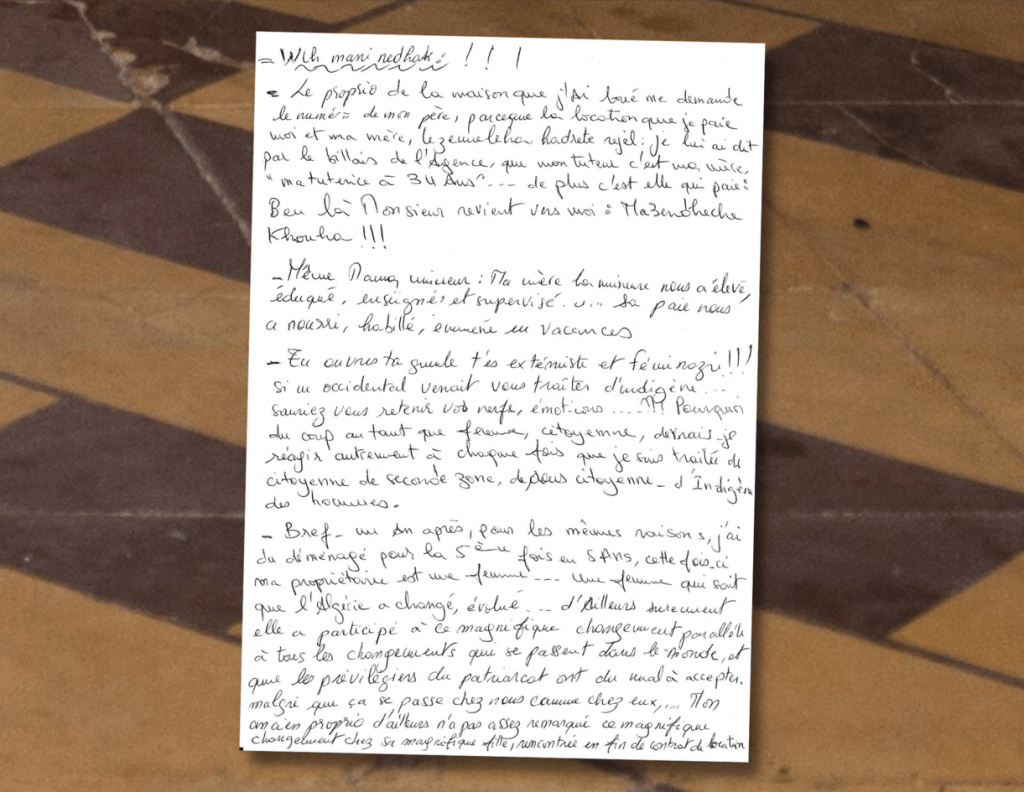 - Wlh mani nedhak : ! ! !
- Le proprio de la maison que j'Ai loué me demande
le numéro de mon père, parceque la location que je paie
moi et ma mère, lezemeleha hadrete rejel : je lui ai dit
par le billais de l'Agence, que mon tuteur c'est ma mère,
"ma tutrice à 34 Ans" --- de plus c'est elle qui paie :
Ben là Monsieur revient vers moi : Ma3endheche
Khouha !!!
- Même Mama mineur : Ma mère la mineure nous a élevé,
éduqué, enseigné, et supervisé. ... Sa paie nous
a nourri, habillé, emmené en vacances
- Tu ouvres ta gueule t'es extémiste et féminazi !!!
Si un occidental venait vous traiter d'indigène...
sauriez vous retenir vos nerfs, émotions ....??! Pourquoi
du coup autant que femme, citoyenne, devrais-je
réagir autrement à chaque fois que je suis traitée de
citoyenne de seconde zone, de sous citoyenne - d'Indigène
des hommes.
- Bref - un An après, pour les mêmes raisons, j'ai
du déménagé pour la 5ème fois en 5 ANS, cette fois-ci
ma propriétaire est une femme --- Une femme qui sait
que l'Algérie a changé, évolué ... d'Ailleurs surement
elle a participé à ce magnifique changement parallèle
à tous les changements qui se passent dans le monde, et
que les prévilégiers du patriarcat ont du mal à accepter.
malgré que ça se passe chez nous comme chez eux, ... Mon
ancien proprio d'ailleurs n'a pas assez remarqué ce magnifique
changement chez sa magnifique fille, rencontrée en fin de contrat de location